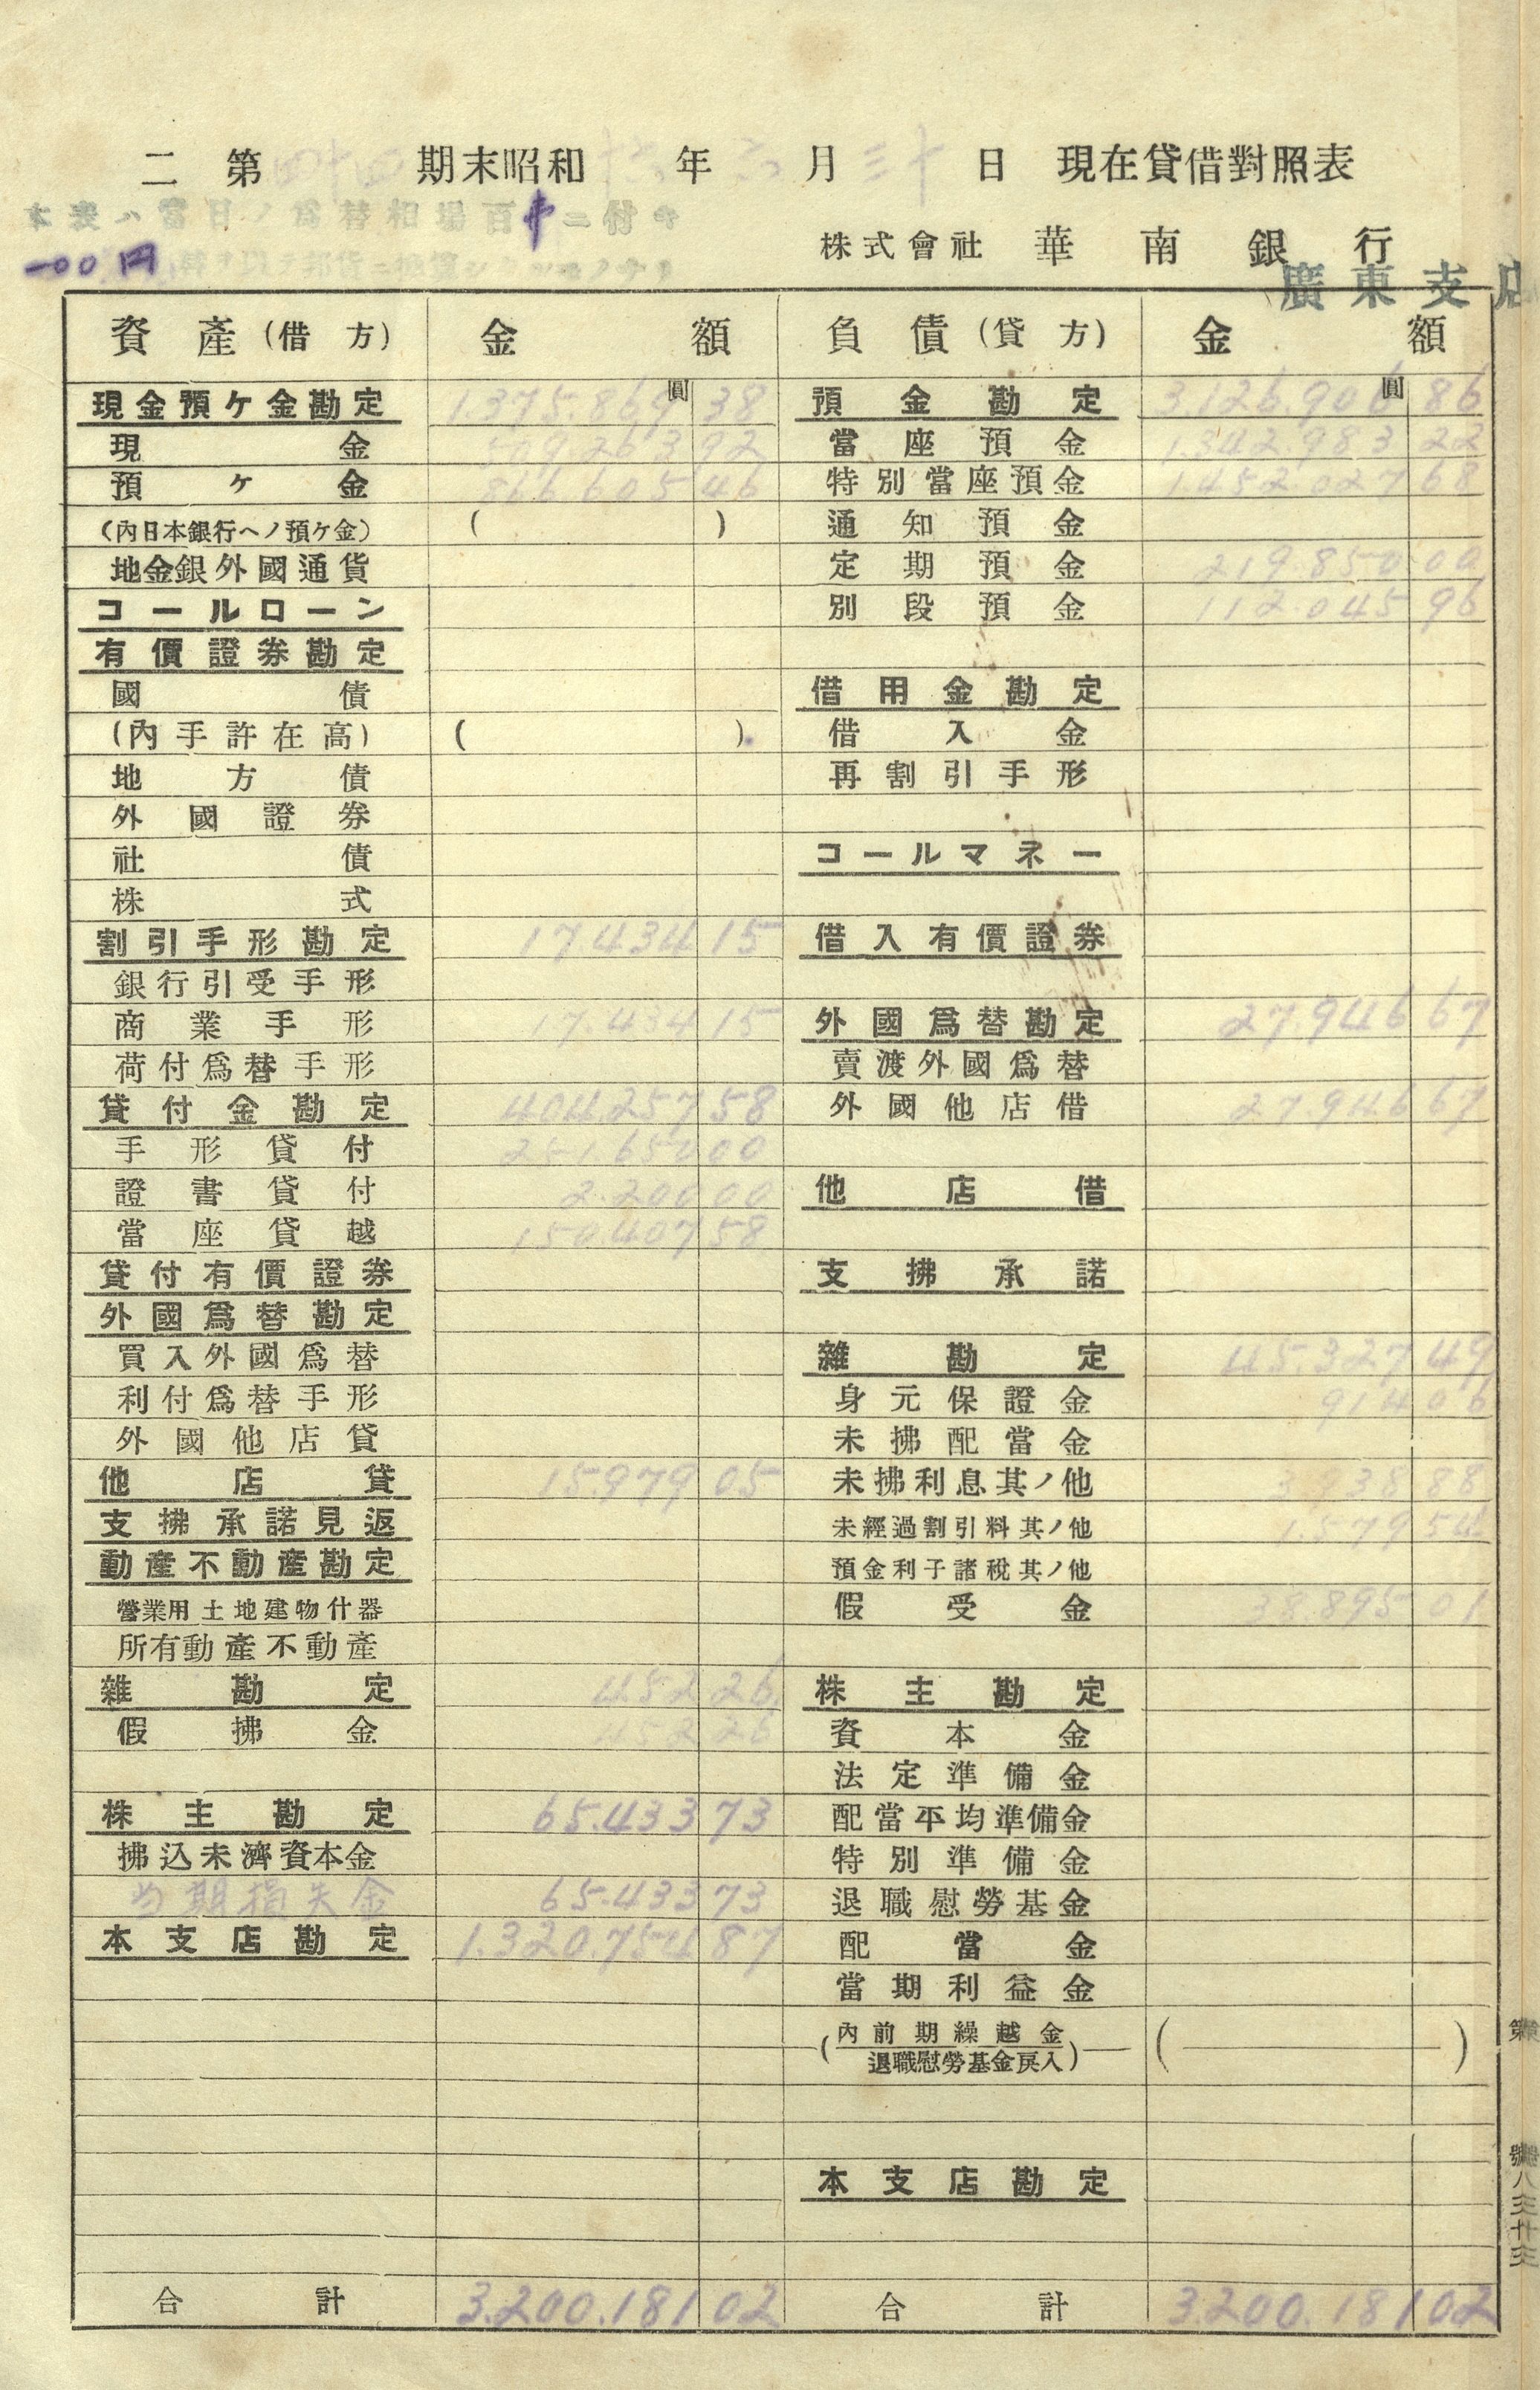 二 第四十四期末昭和十六年六月三十日 現在貸借對照表
本表ハ當日ノ爲替相場百弗ニ付キ
一〇〇円
株式會社 華南銀行
廣東支店
資產(借方) 金額 負債(貸方) 金額
現金預ケ金勘定 1.375.869圓38 預金勘定 3.126.906圓86
現金 509.263 92 當座預金 1.342.983 22
預ケ金 866.605 46 特別當座預金 1.452.027 68
(內日本銀行ヘノ預ケ金) ( ) 通知預金
地金銀外國通貨 定期預金 219.850 00
コールローン 別段預金 112.045 96
有價證券勘定
國債 借用金勘定
(內手許在高) ( ) 借入金
地方債 再割引手形
外國證券
社債 コールマネー
株式
割引手形勘定 17.434 15 借入有價證券
銀行引受手形
商業手形 17.434 15 外國爲替勘定 27.946 67
荷付爲替手形 賣渡外國爲替
貸付金勘定 404.257 58 外國他店借 27.946 67
手形貸付 251.650 00
證書貸付 2.200 00 他店借
當座貸越 150.407 58
貸付有價證券 支拂承諾
外國爲替勘定
買入外國爲替 雜勘定 45.327 49
利付爲替手形 身元保證金 914 06
外國他店貸 未拂配當金
他店貸 15.979 05 未拂利息其ノ他 3.938 88
支拂承諾見返 未經過割引料其ノ他 1.579 54
動產不動產勘定 預金利子諸稅其ノ他
營業用土地建物什器 假受金 38.895 01
所有動產不動產
雜勘定 452 26 株主勘定
假拂金 452 26 資本金
法定準備金
株主勘定 65.433 73 配當平均準備金
拂込未濟資本金 特別準備金
当期損失金 65.433 73 退職慰勞基金
本支店勘定 1.320.754 87 配當金
當期利益金
(內前期繰越金 退職慰勞基金戾入) ( )
本支店勘定
合計 3.200.181 02 合計 3.200.181 02